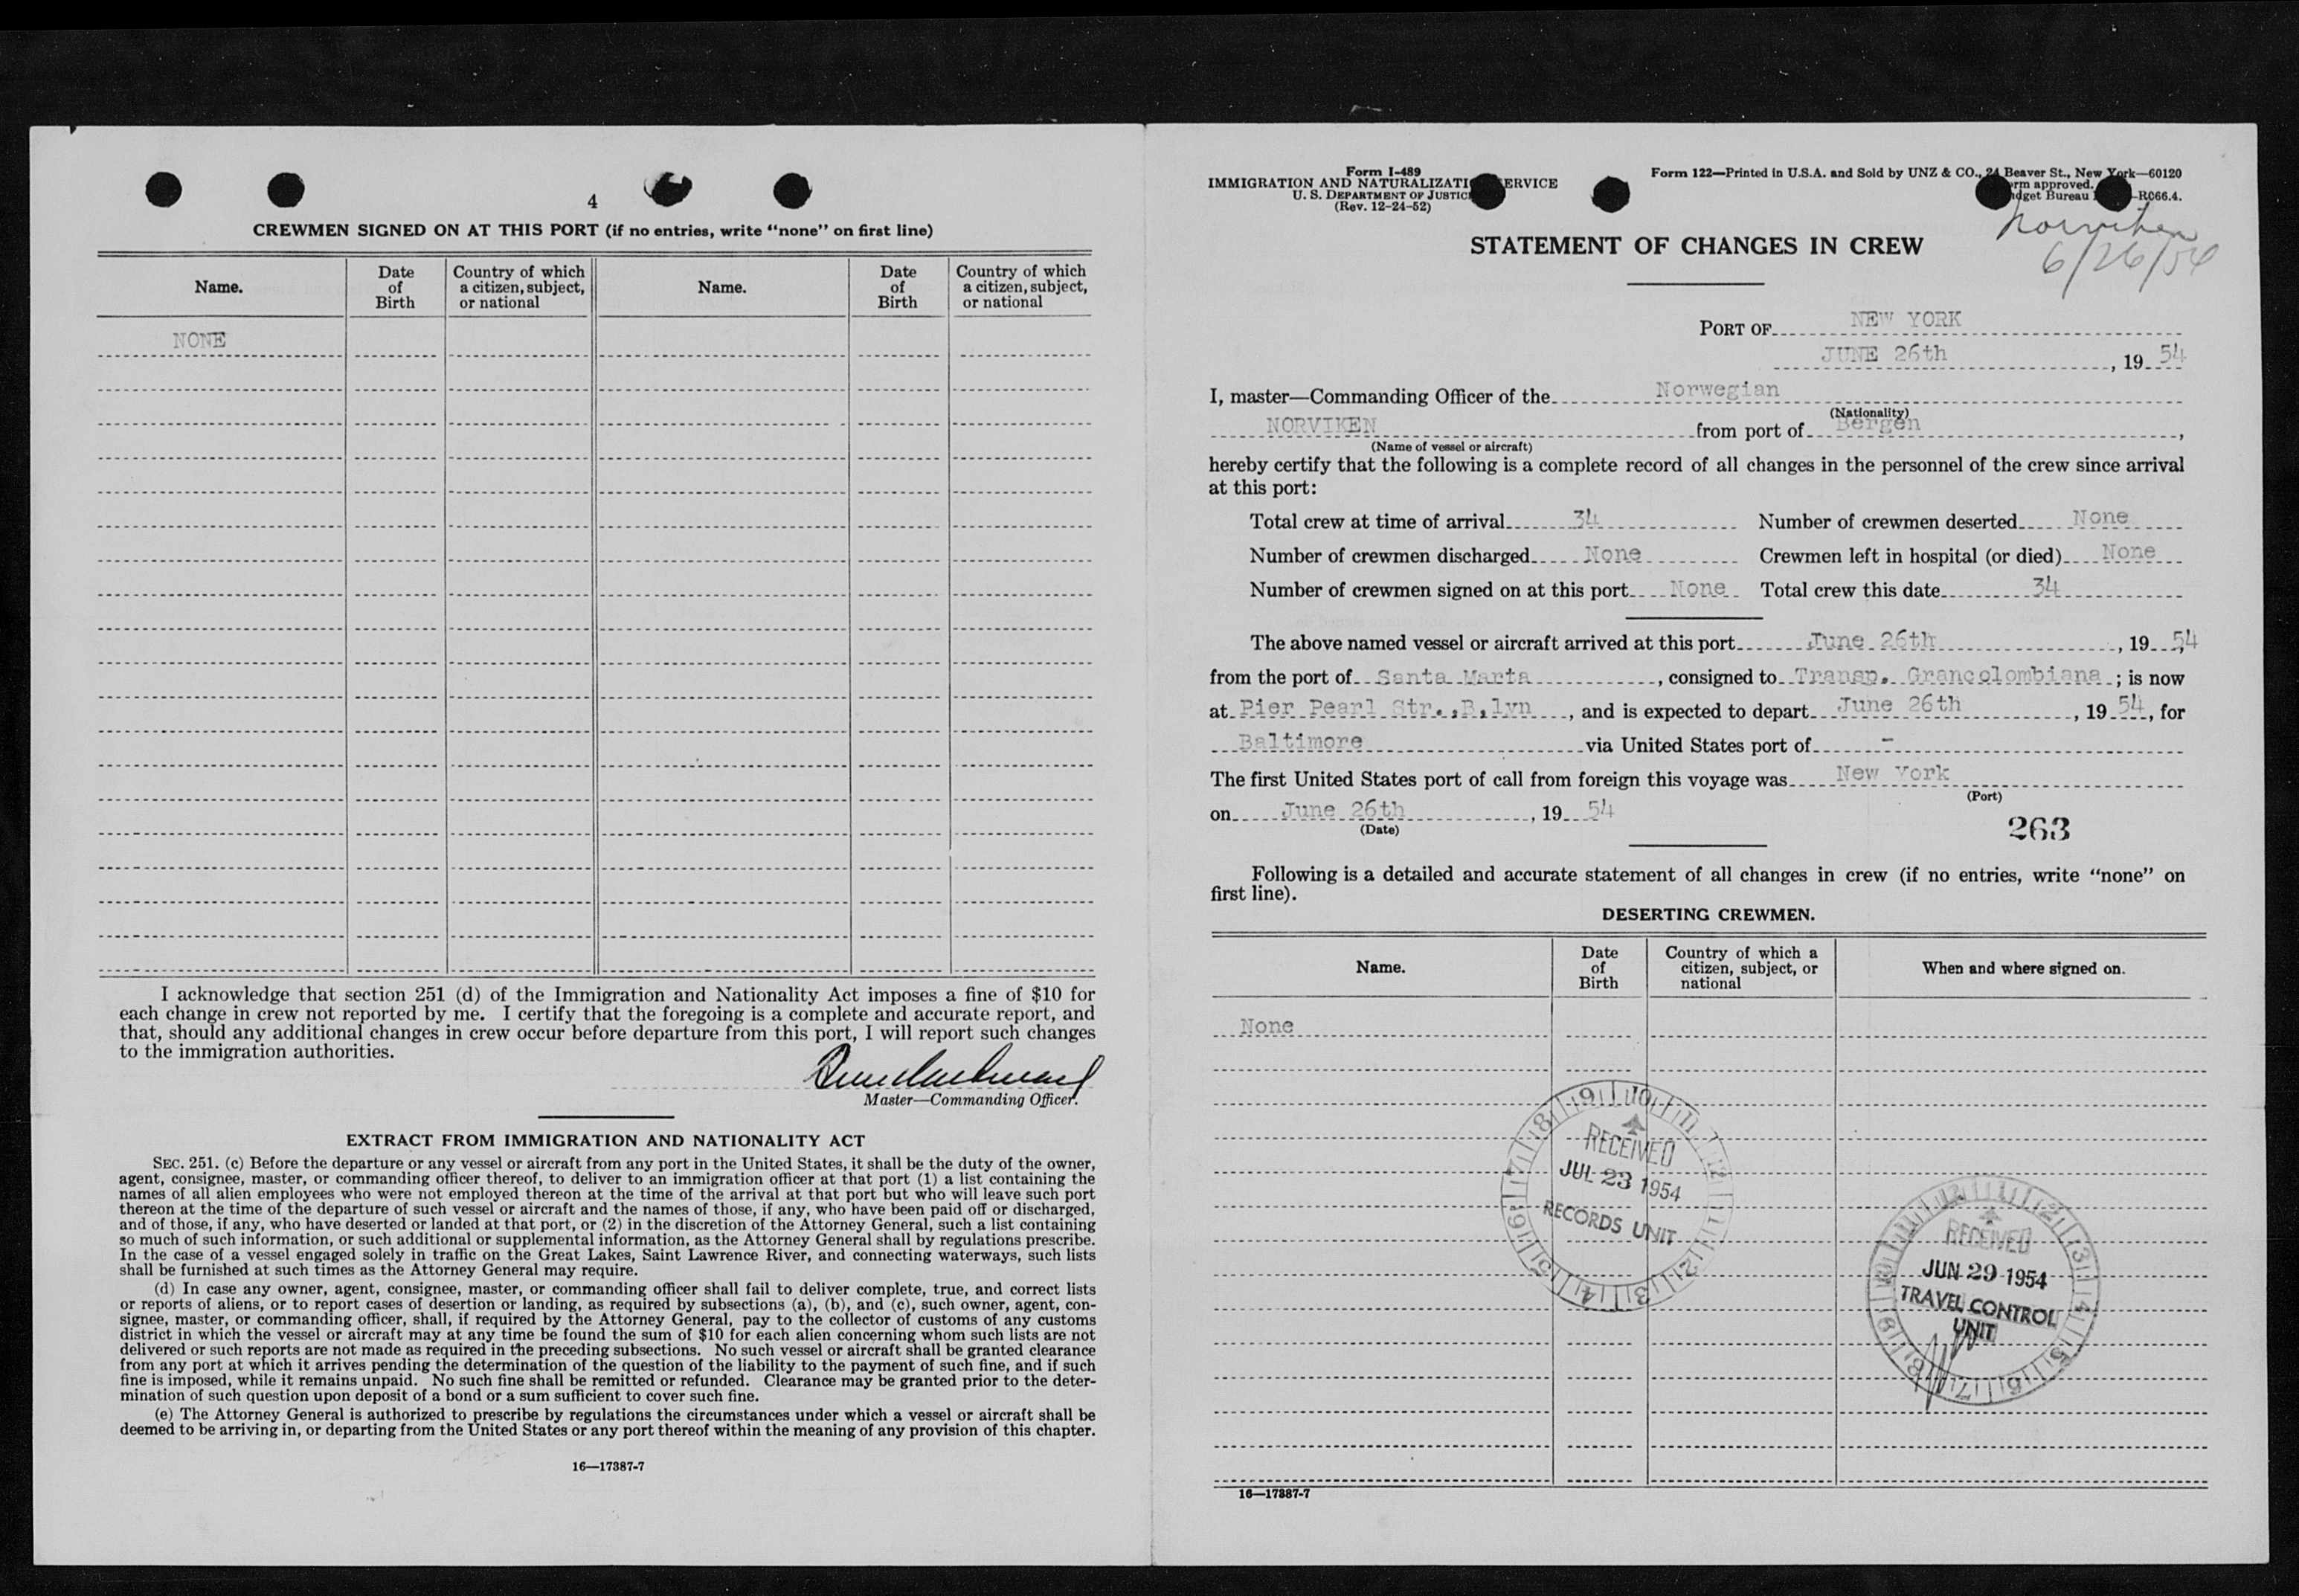 4
CREWMEN SIGNED ON AT THIS PORT (if no entries, write “none” on first line)
Name. Date of Birth Country of which a citizen, subject, or national Name. Date of Birth Country of which a citizen, subject, or national
NONE
I acknowledge that section 251 (d) of the Immigration and Nationality Act imposes a fine of $10 for
each change in crew not reported by me. I certify that the foregoing is a complete and accurate report, and
that, should any additional changes in crew occur before departure from this port, I will report such changes
to the immigration authorities.
Master—Commanding Officer.
EXTRACT FROM IMMIGRATION AND NATIONALITY ACT
SEC. 251. (c) Before the departure or any vessel or aircraft from any port in the United States, it shall be the duty of the owner,
agent, consignee, master, or commanding officer thereof, to deliver to an immigration officer at that port (1) a list containing the
names of all alien employees who were not employed thereon at the time of the arrival at that port but who will leave such port
thereon at the time of the departure of such vessel or aircraft and the names of those, if any, who have been paid off or discharged,
and of those, if any, who have deserted or landed at that port, or (2) in the discretion of the Attorney General, such a list containing
so much of such information, or such additional or supplemental information, as the Attorney General shall by regulations prescribe.
In the case of a vessel engaged solely in traffic on the Great Lakes, Saint Lawrence River, and connecting waterways, such lists
shall be furnished at such times as the Attorney General may require.
(d) In case any owner, agent, consignee, master, or commanding officer shall fail to deliver complete, true, and correct lists
or reports of aliens, or to report cases of desertion or landing, as required by subsections (a), (b), and (c), such owner, agent, con-
signee, master, or commanding officer, shall, if required by the Attorney General, pay to the collector of customs of any customs
district in which the vessel or aircraft may at any time be found the sum of $10 for each alien concerning whom such lists are not
delivered or such reports are not made as required in the preceding subsections. No such vessel or aircraft shall be granted clearance
from any port at which it arrives pending the determination of the question of the liability to the payment of such fine, and if such
fine is imposed, while it remains unpaid. No such fine shall be remitted or refunded. Clearance may be granted prior to the deter-
mination of such question upon deposit of a bond or a sum sufficient to cover such fine.
(e) The Attorney General is authorized to prescribe by regulations the circumstances under which a vessel or aircraft shall be
deemed to be arriving in, or departing from the United States or any port thereof within the meaning of any provision of this chapter.
16—17387-7
Form I-489
IMMIGRATION AND NATURALIZATI ERVICE
U. S. DEPARTMENT OF JUSTIC
(Rev. 12-24-52)
Form 122—Printed in U.S.A. and Sold by UNZ & CO., 24 Beaver St., New York—60120
rm approved.
dget Bureau -R066.4.
Norviken
6/26/54
STATEMENT OF CHANGES IN CREW
PORT OF NEW YORK
JUNE 26th, 19 54
I, master—Commanding Officer of the Norwegian
(Nationality)
NORVIKEN from port of Bergen,
(Name of vessel or aircraft)
hereby certify that the following is a complete record of all changes in the personnel of the crew since arrival
at this port:
Total crew at time of arrival 34 Number of crewmen deserted None
Number of crewmen discharged None Crewmen left in hospital (or died) None
Number of crewmen signed on at this port None Total crew this date 34
The above named vessel or aircraft arrived at this port June 26th, 19 54
from the port of Santa Marta, consigned to Transp. Grancolombiana; is now
at Pier Pearl Str.,B,lyn, and is expected to depart June 26th, 19 54, for
Baltimore via United States port of -
The first United States port of call from foreign this voyage was New York
(Port)
on June 26th, 19 54
(Date)
263
Following is a detailed and accurate statement of all changes in crew (if no entries, write “none” on
first line).
DESERTING CREWMEN.
Name. Date of Birth Country of which a citizen, subject, or national When and where signed on.
None
RECEIVED
JUL 23 1954
RECORDS UNIT
RECEIVED
JUN 29 1954
TRAVEL CONTROL
UNIT
16—17387-7